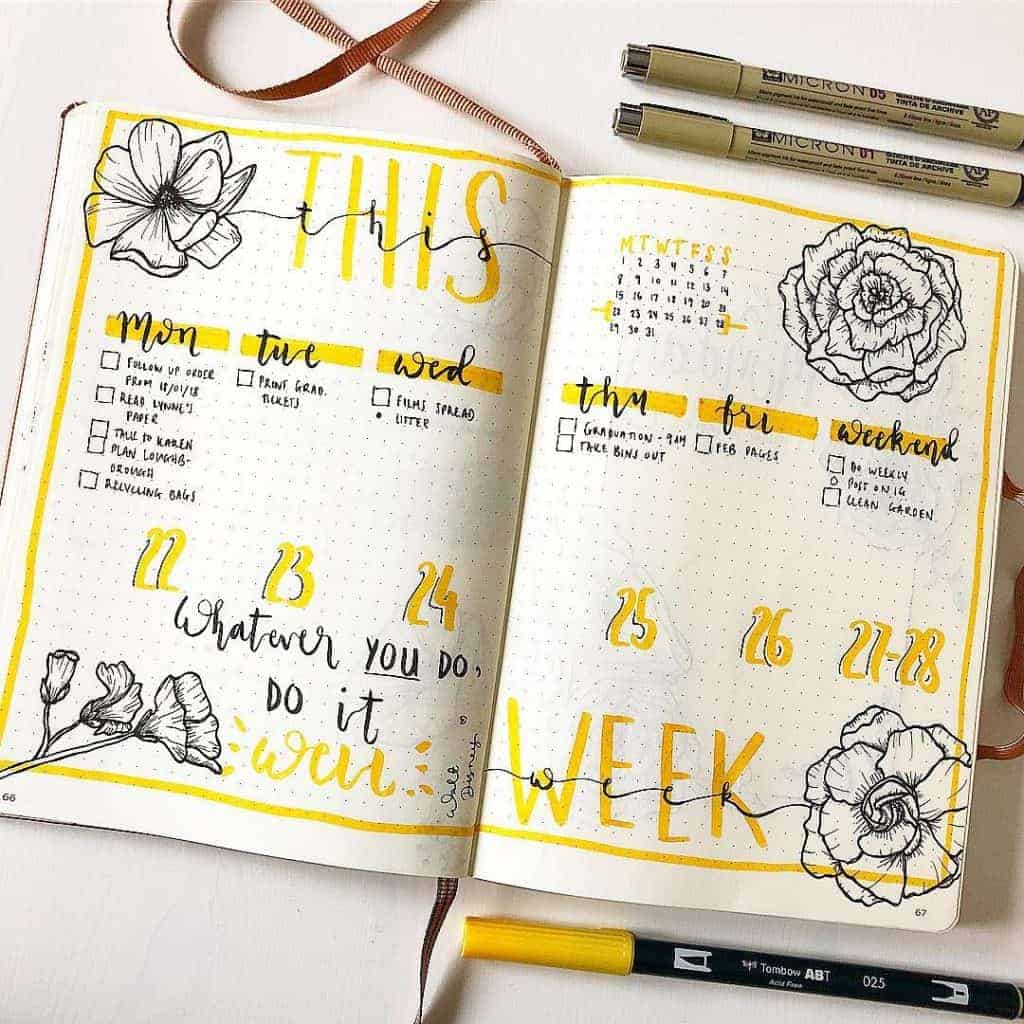 THIS
this
Mon
FOLLOW UP ORDER
FROM 18/01/18
READ LYNNE'S
PAPER
TALK TO KAREN
PLAN LOUGHB-
OROUGH
RECYCLING BAGS
tue
PRINT GRAD.
TICKETS
wed
FILMS SPREAD
LITTER
22
23
24
Whatever YOU DO,
DO it
well
Walt
Disney
66
M T W T F S S
1 2 3 4 5 6 7
8 9 10 11 12 13 14
15 16 17 18 19 20 21
22 23 24 25 26 27 28
29 30 31
thu
GRADUATION - 9AM
TAKE BINS OUT
fri
FEB PAGES
weekend
DO WEEKLY
POST ON IG
CLEAN GARDEN
25
26
27-28
WEEK
week
67
MICRON 05
TINTA DE ARCHIVE
AP
MICRON 01
TINTA DE ARCHIVE
AP
Tombow ABT
Acid Free
025